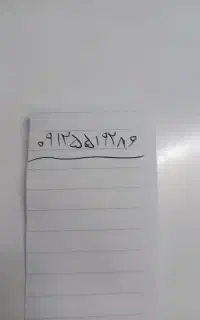 ۰۹۱۲۵۵۱۹۲۸۶